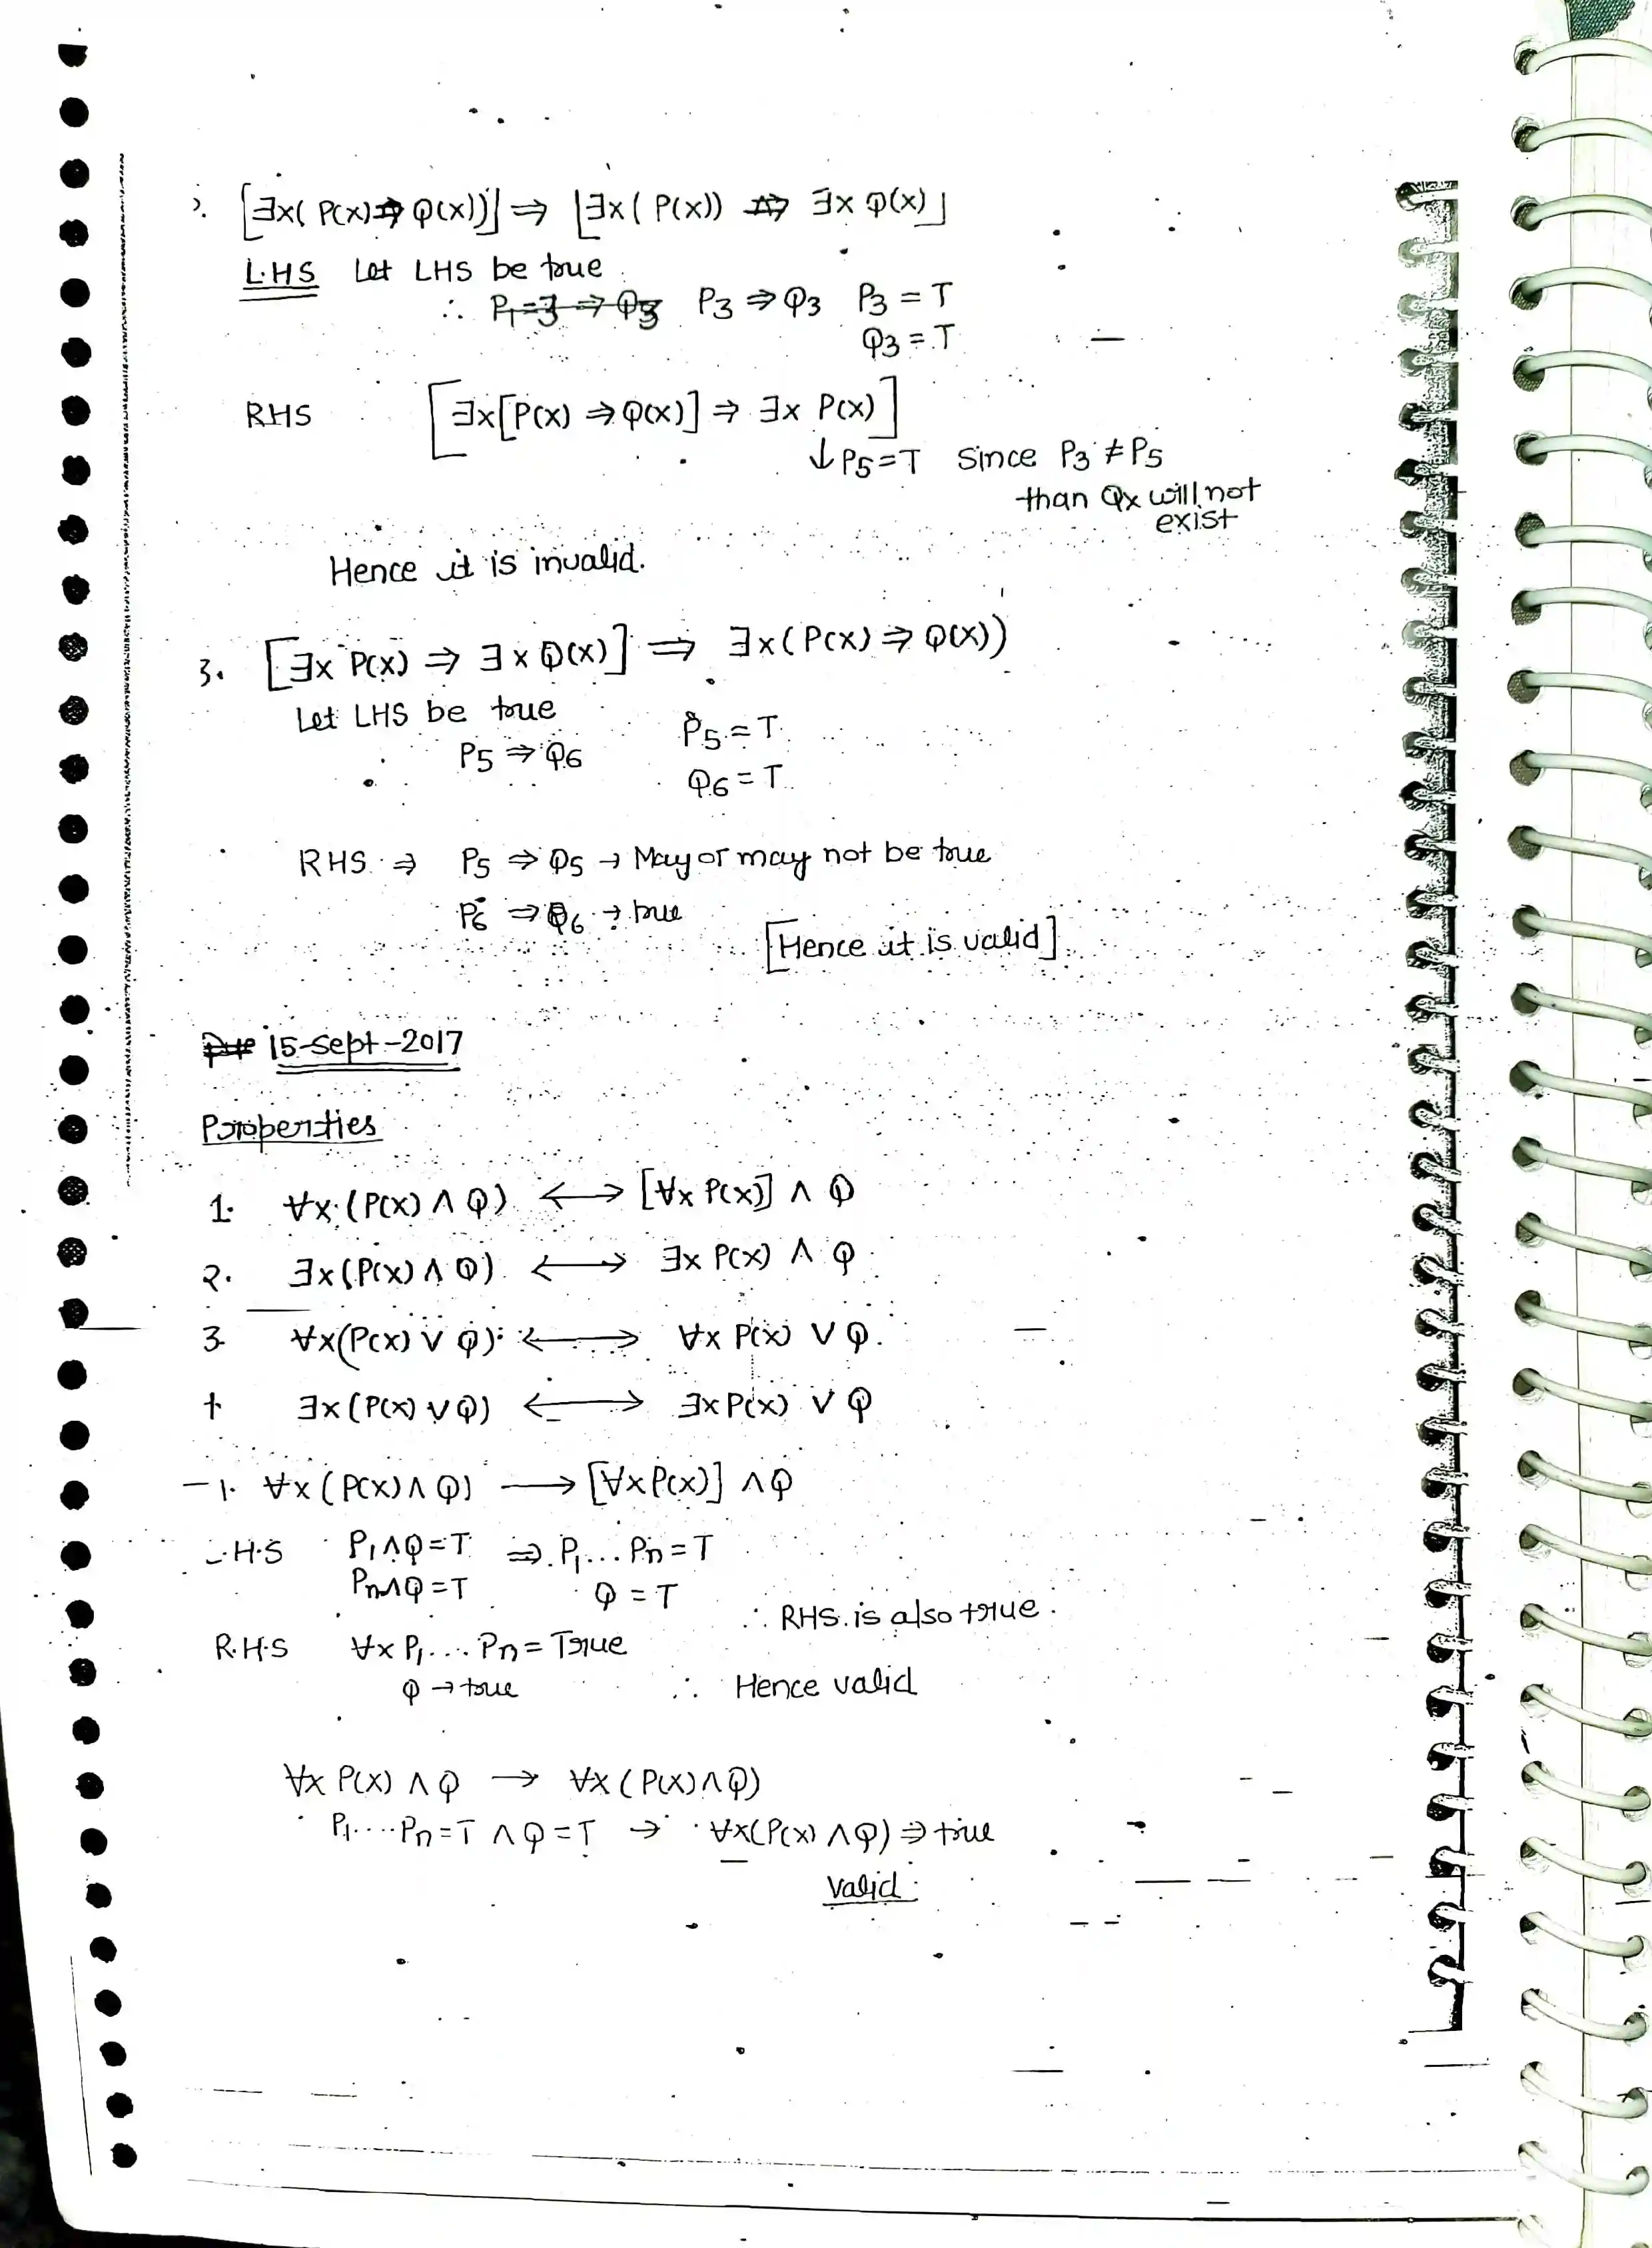 2. [∃x( P(x) ⇒ Q(x))] ⇒ [∃x( P(x)) ⇒ ∃x Q(x)]
L.HS Let LHS be true
∴ P1=3 ⇒ Q3 P3 ⇒ Q3 P3 = T
Q3 = T
RHS [∃x[P(x) ⇒ Q(x)] ⇒ ∃x P(x)]
↓ P5 = T Since P3 ≠ P5
than Qx will not
exist
Hence it is invalid.
3. [∃x P(x) ⇒ ∃x Q(x)] ⇒ ∃x(P(x) ⇒ Q(x))
Let LHS be true
P5 = T
P5 ⇒ Q6
Q6 = T
RHS ⇒ P5 ⇒ Q5 → May or may not be true
P6 ⇒ Q6 → true
[Hence it is valid]
15-Sept-2017
Properties
1. ∀x (P(x) ∧ Q) ⟷ [∀x P(x)] ∧ Q
2. ∃x (P(x) ∧ Q) ⟷ ∃x P(x) ∧ Q
3. ∀x(P(x) ∨ Q) ⟷ ∀x P(x) ∨ Q.
∃x (P(x) ∨ Q) ⟷ ∃x P(x) ∨ Q
1. ∀x (P(x) ∧ Q) ⟶ [∀x P(x)] ∧ Q
L.H.S P1 ∧ Q = T ⇒ P1 ... Pn = T
Pn ∧ Q = T Q = T
∴ RHS is also true.
R.H.S ∀x P1 .... Pn = True
Q → true ∴ Hence valid
∀x P(x) ∧ Q → ∀x (P(x) ∧ Q)
P1 .... Pn = T ∧ Q = T → ∀x(P(x) ∧ Q) ⇒ true
Valid